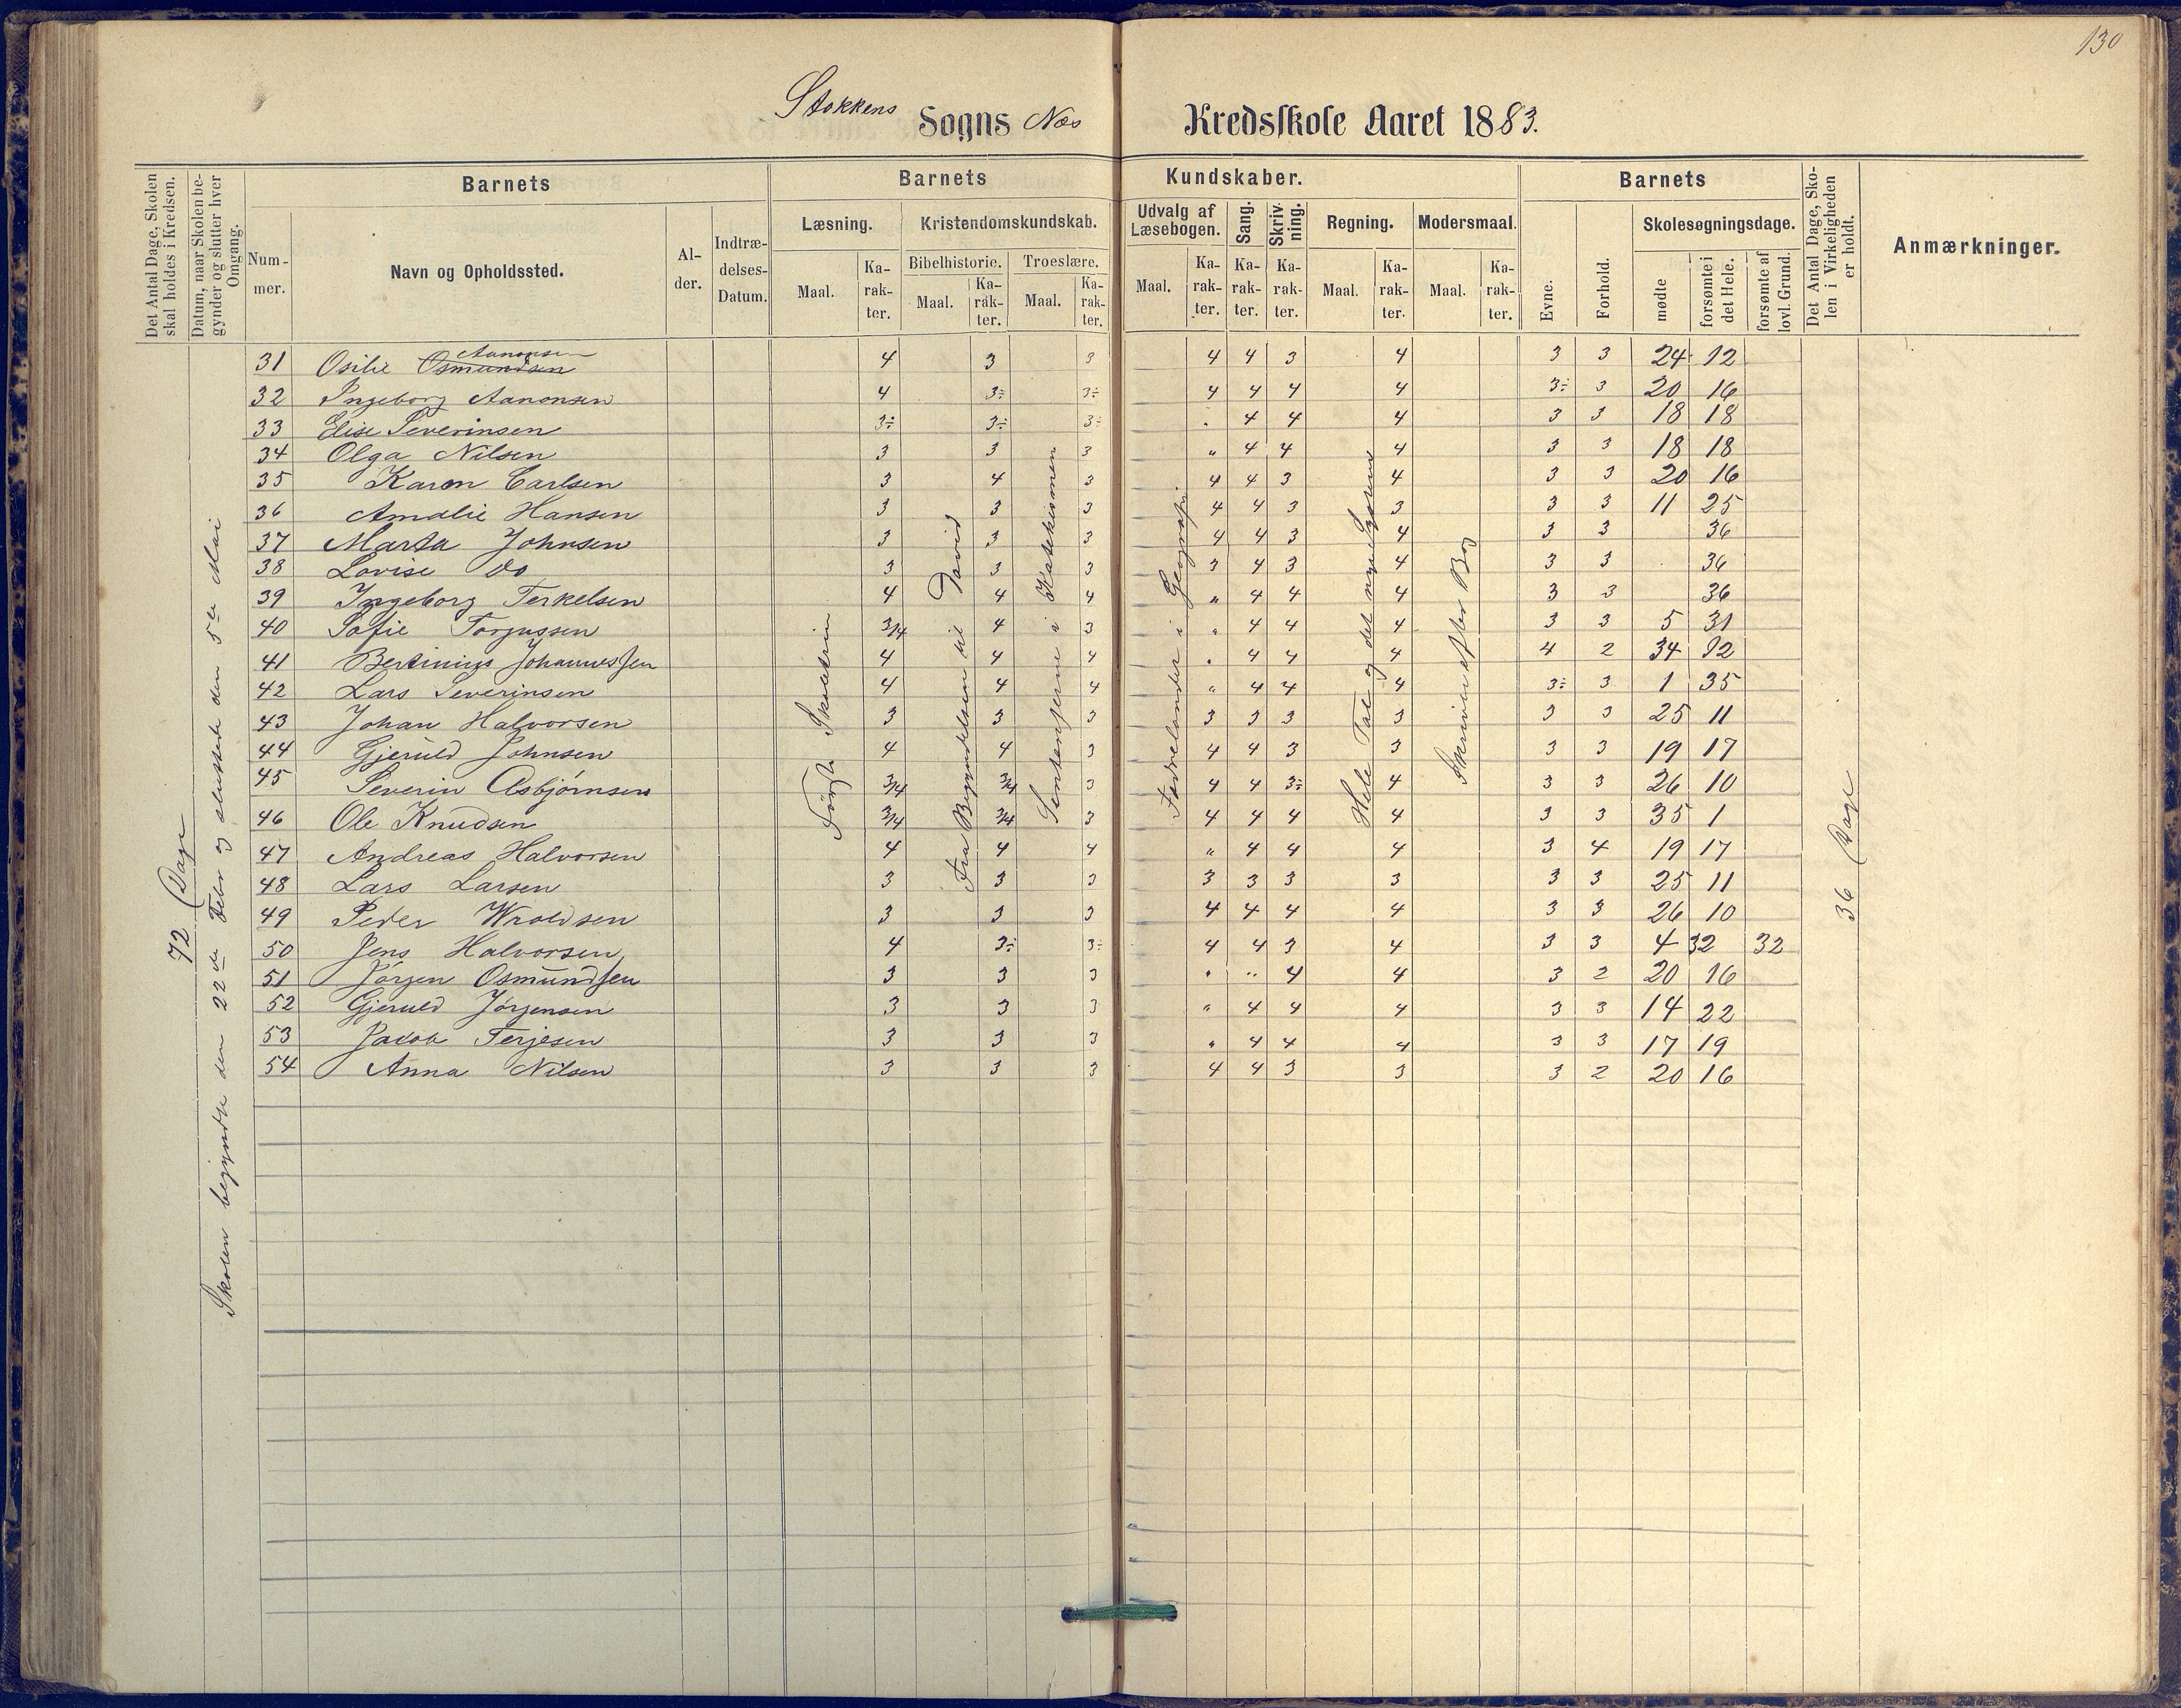 130
Stokkens Sogns Næs Kredsskole Aaret 1883.
Det Antal Dage, Skolen skal holdes i Kredsen.
Datum, naar Skolen begynder og slutter hver Omgang.
Barnets
Nummer.
Navn og Opholdssted.
Alder.
Indtrædelses-Datum.
Barnets Kundskaber.
Læsning.
Maal.
Karakter.
Kristendomskundskab.
Bibelhistorie.
Maal.
Karakter.
Troeslære.
Maal.
Karakter.
Udvalg af Læsebogen.
Maal.
Karakter.
Sang.
Karakter.
Skrivning.
Karakter.
Regning.
Maal.
Karakter.
Modersmaal.
Maal.
Karakter.
Barnets
Evne.
Forhold.
Skolesøgningsdage.
mødte
forsømte i det Hele.
forsømte af lovl. Grund.
Det Antal Dage, Skolen i Virkeligheden er holdt.
Anmærkninger.
72 Dage
Skolen begyndte den 22de Febr og sluttede den 5te Mai
Første Skoletrin
Fra Begyndelsen til David
Sentensjerne i Katekismen
Fædrelandet i Geografi
Hele Tal og det nye System
Skriven efter Bog
36 Dage
31 Osilie Osmundsen Aanonsen 4 3 3 4 4 3 4 3 3 24 12
32 Ingeborg Aanonsen 4 3÷ 3÷ 4 4 4 4 3÷ 3 20 16
33 Elise Severinsen 3÷ 3÷ 3÷ . 4 4 4 3 3 18 18
34 Olga Nilsen 3 3 3 " 4 4 4 3 3 18 18
35 Karen Carlsen 3 4 3 4 4 3 4 3 3 20 16
36 Amalie Hansen 3 3 3 4 4 3 3 3 3 11 25
37 Marta Johnsen 3 3 3 4 4 3 4 3 3 36
38 Lovise do 3 3 3 3 4 3 4 3 3 36
39 Ingeborg Terkelsen 4 4 4 " 4 4 4 3 3 36
40 Sofie Torjussen 3/4 4 3 " 4 4 4 3 3 5 31
41 Bertinius Johannessen 4 4 4 . 4 4 4 4 2 34 02
42 Lars Severinsen 4 4 4 " 4 4 4 3÷ 3 1 35
43 Johan Halvorsen 3 3 3 3 3 3 3 3 3 25 11
44 Gjeruld Johnsen 4 4 3 4 4 3 3 3 3 19 17
45 Severin Asbjørnsen 3/4 3/4 3 4 4 3÷ 4 3 3 26 10
46 Ole Knudsen 3/4 3/4 3 4 4 4 4 3 3 35 1
47 Andreas Halvorsen 4 4 4 " 4 4 4 3 4 19 17
48 Lars Larsen 3 3 3 3 3 3 3 3 3 25 11
49 Peder Wroldsen 3 3 3 4 4 4 4 3 3 26 10
50 Jens Halvorsen 4 3÷ 3÷ 4 4 3 4 3 3 4 32 32
51 Jørgen Osmundsen 3 3 3 " " 4 4 3 2 20 16
52 Gjeruld Jørgensen 3 3 3 " 4 4 4 3 3 14 22
53 Jacob Terjesen 3 3 3 " 4 4 4 3 3 17 19
54 Anna Nilsen 3 3 3 4 4 3 3 3 2 20 16